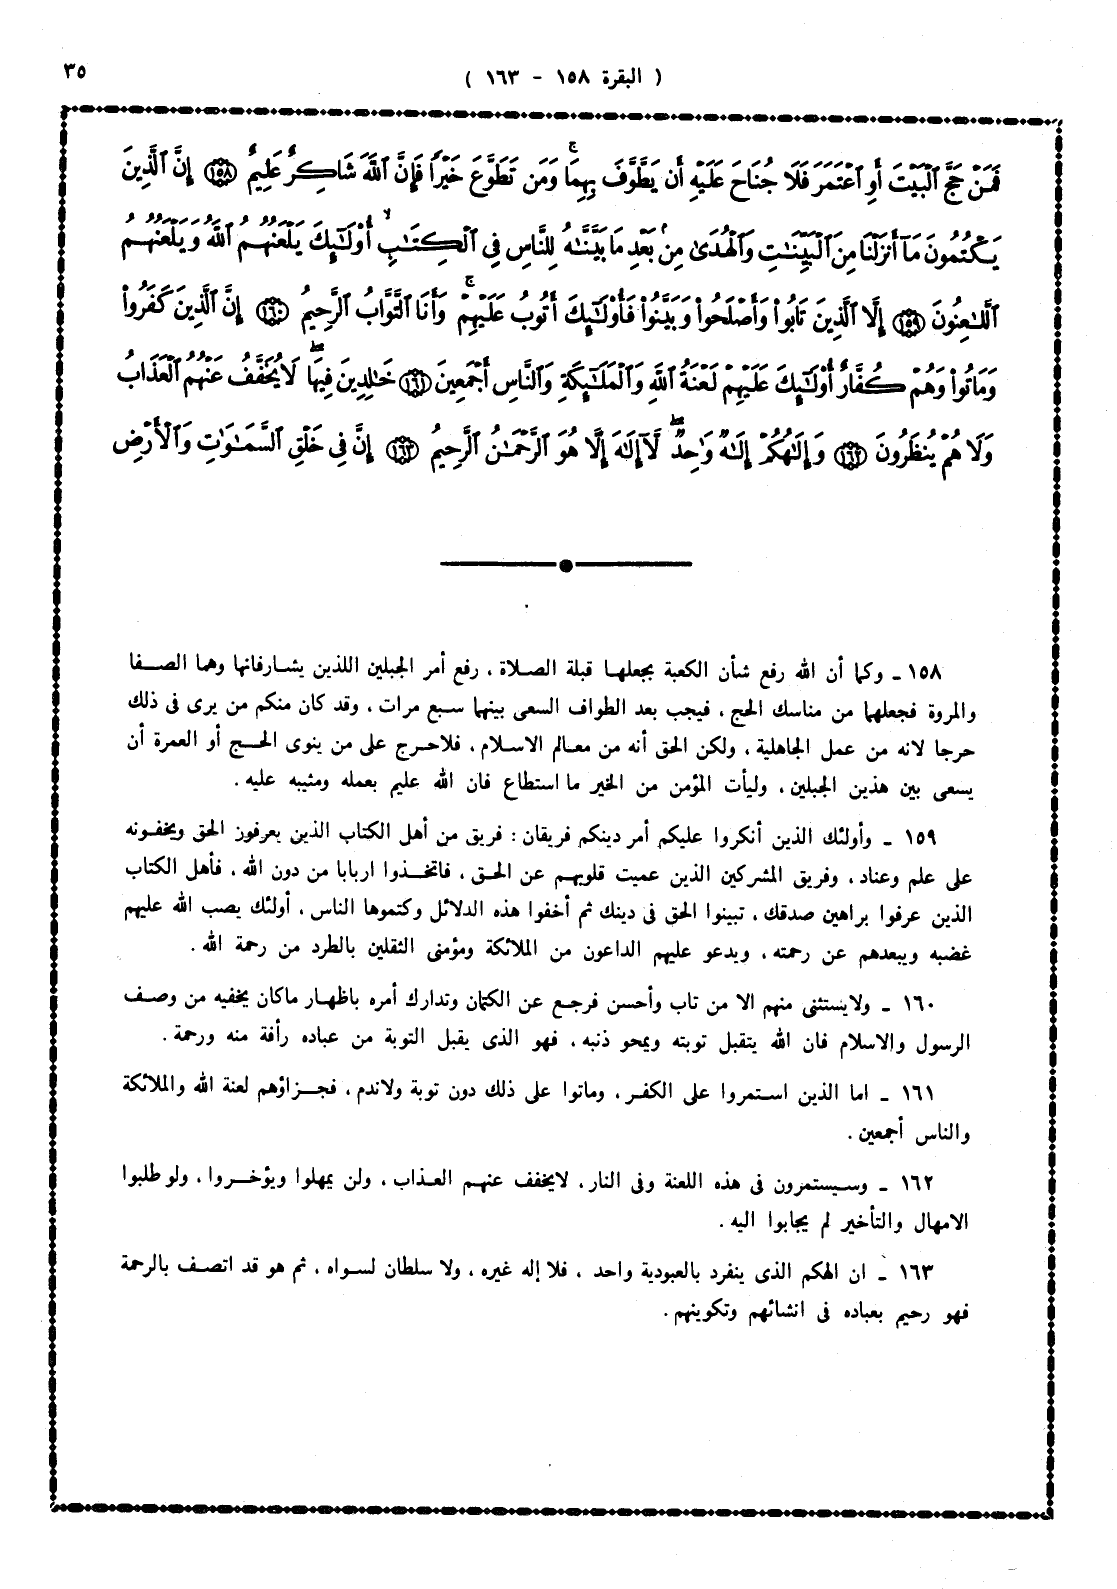 ( البقرة ١٥٨ - ١٦٣ )
٣٥
فَمَنْ حَجَّ ٱلْبَيْتَ أَوِ ٱعْتَمَرَ فَلَا جُنَاحَ عَلَيْهِ أَن يَطَّوَّفَ بِهِمَا ۚ وَمَن تَطَوَّعَ خَيْرًا فَإِنَّ ٱللَّهَ شَاكِرٌ عَلِيمٌ ١٥٨ إِنَّ ٱلَّذِينَ
يَكْتُمُونَ مَآ أَنزَلْنَا مِنَ ٱلْبَيِّنَـٰتِ وَٱلْهُدَىٰ مِنۢ بَعْدِ مَا بَيَّنَّـٰهُ لِلنَّاسِ فِى ٱلْكِتَـٰبِ ۙ أُوْلَـٰٓئِكَ يَلْعَنُهُمُ ٱللَّهُ وَيَلْعَنُهُمُ
ٱللَّـٰعِنُونَ ١٥٩ إِلَّا ٱلَّذِينَ تَابُوا۟ وَأَصْلَحُوا۟ وَبَيَّنُوا۟ فَأُوْلَـٰٓئِكَ أَتُوبُ عَلَيْهِمْ ۚ وَأَنَا ٱلتَّوَّابُ ٱلرَّحِيمُ ١٦٠ إِنَّ ٱلَّذِينَ كَفَرُوا۟
وَمَاتُوا۟ وَهُمْ كُفَّارٌ أُوْلَـٰٓئِكَ عَلَيْهِمْ لَعْنَةُ ٱللَّهِ وَٱلْمَلَـٰٓئِكَةِ وَٱلنَّاسِ أَجْمَعِينَ ١٦١ خَـٰلِدِينَ فِيهَا ۖ لَا يُخَفَّفُ عَنْهُمُ ٱلْعَذَابُ
وَلَا هُمْ يُنظَرُونَ ١٦٢ وَإِلَـٰهُكُمْ إِلَـٰهٌ وَٰحِدٌ ۖ لَّآ إِلَـٰهَ إِلَّا هُوَ ٱلرَّحْمَـٰنُ ٱلرَّحِيمُ ١٦٣ إِنَّ فِى خَلْقِ ٱلسَّمَـٰوَٰتِ وَٱلْأَرْضِ
١٥٨ ـ وكما أن الله رفع شأن الكعبة بجعلها قبلة الصلاة ، رفع أمر الجبلين اللذين يشارفانها وهما الصفا
والمروة فجعلهما من مناسك الحج ، فيجب بعد الطواف السعى بينهما سبع مرات ، وقد كان منكم من يرى فى ذلك
حرجا لانه من عمل الجاهلية ، ولكن الحق أنه من معالم الاسلام ، فلاحرج على من ينوى الحج أو العمرة أن
يسعى بين هذين الجبلين ، وليأت المؤمن من الخير ما استطاع فان الله عليم بعمله ومثيبه عليه .
١٥٩ ـ وأولئك الذين أنكروا عليكم أمر دينكم فريقان : فريق من أهل الكتاب الذين يعرفون الحق ويخفونه
على علم وعناد ، وفريق المشركين الذين عميت قلوبهم عن الحق ، فاتخذوا اربابا من دون الله ، فأهل الكتاب
الذين عرفوا براهين صدقك ، تبينوا الحق فى دينك ثم أخفوا هذه الدلائل وكتموها الناس ، أولئك يصب الله عليهم
غضبه ويبعدهم عن رحمته ، ويدعو عليهم الداعون من الملائكة ومؤمنى الثقلين بالطرد من رحمة الله .
١٦٠ ـ ولايستثنى منهم الا من تاب وأحسن فرجع عن الكتمان وتدارك أمره باظهار ماكان يخفيه من وصف
الرسول والاسلام فان الله يتقبل توبته ويمحو ذنبه ، فهو الذى يقبل التوبة من عباده رأفة منه ورحمة .
١٦١ ـ اما الذين استمروا على الكفر ، وماتوا على ذلك دون توبة ولاندم ، فجزاؤهم لعنة الله والملائكة
والناس أجمعين .
١٦٢ ـ وسيستمرون فى هذه اللعنة وفى النار ، لايخفف عنهم العذاب ، ولن يمهلوا ويؤخروا ، ولو طلبوا
الامهال والتأخير لم يجابوا اليه .
١٦٣ ـ ان الهكم الذى ينفرد بالعبودية واحد ، فلا إله غيره ، ولا سلطان لسواه ، ثم هو قد اتصف بالرحمة
فهو رحيم بعباده فى انشائهم وتكوينهم .